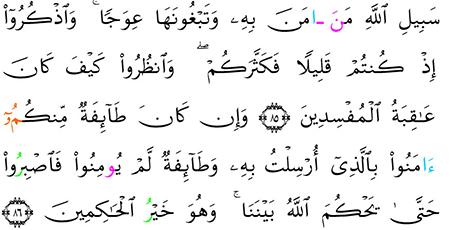 سَبِيلِ اللَّهِ مَنَ ـ اٰمَنَ بِهِۦ وَتَبْغُونَهَا عِوَجًا ۚ وَاذْكُرُوٓا۟
إِذْ كُنتُمْ قَلِيلًا فَكَثَّرَكُمْ ۖ وَانظُرُوا۟ كَيْفَ كَانَ
عَـٰقِبَةُ الْمُفْسِدِينَ ۝٨٥ وَإِن كَانَ طَآئِفَةٌ مِّنكُمُۥٓ
ءَامَنُوا۟ بِالَّذِىٓ أُرْسِلْتُ بِهِۦ وَطَآئِفَةٌ لَّمْ يُومِنُوا۟ فَاصْبِرُوا۟
حَتَّىٰ يَحْكُمَ اللَّهُ بَيْنَنَا ۚ وَهُوَ خَيْرُ الْحَـٰكِمِينَ ۝٨٦